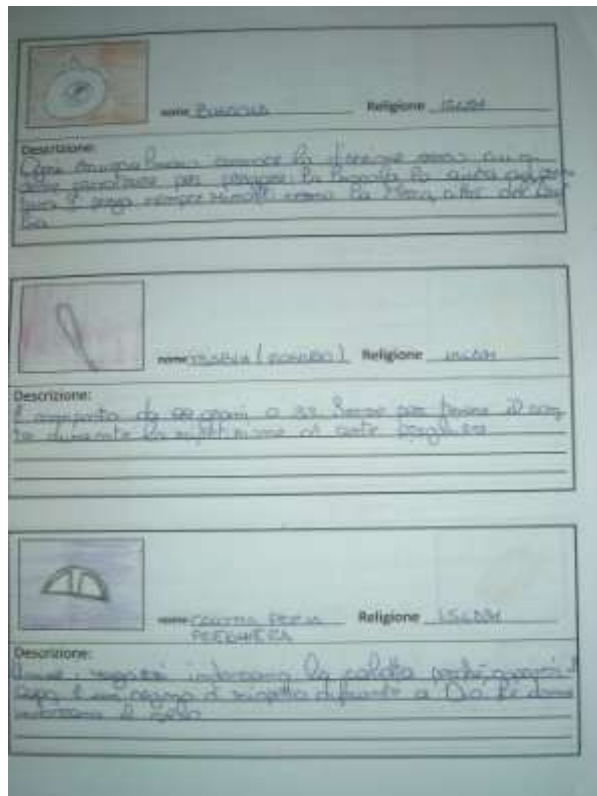 nome BUSSOLA Religione ISLAM
Descrizione:
Ogni musulmano conosce la direzione verso cui
per pregare. La bussola lo aiuta
sempre rivolti verso la Mecca,
nome TASBIH (ROSARIO) Religione ISLAM
Descrizione:
È composto da 99 grani o 33. Serve per tenere il con
to durante la ripetizione di certe preghiere
nome CALOTTA PER LA Religione ISLAM
PREGHIERA
Descrizione:
ragazzi indossano la calotta perché coprirsi il
capo è un segno di rispetto difronte a Dio. Le donne
indossano il velo